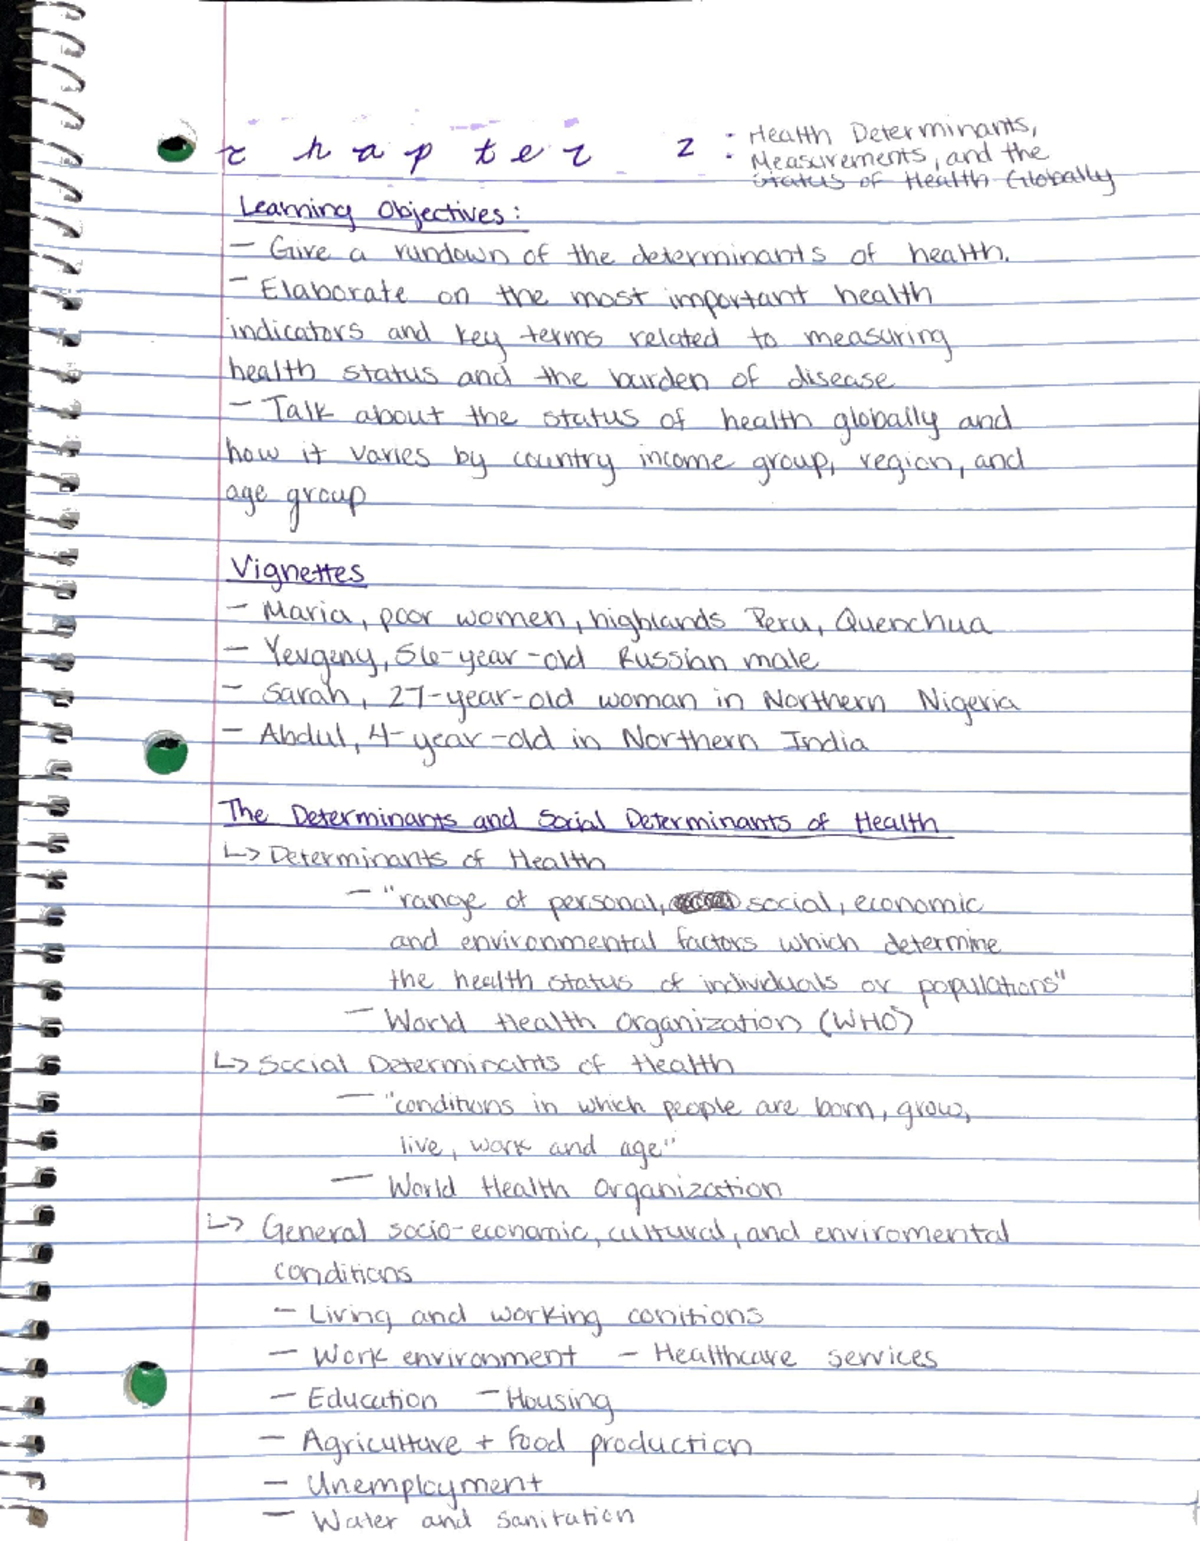 Chapter 2: Health Determinants,
Measurements, and the
Status of Health Globally
Learning Objectives:
- Give a rundown of the determinants of health.
- Elaborate on the most important health
indicators and key terms related to measuring
health status and the burden of disease
- Talk about the status of health globally and
how it varies by country income group, region, and
age group
Vignettes
- Maria, poor women, highlands Peru, Quenchua
- Yevgeny, 56-year-old Russian male
- Sarah, 27-year-old woman in Northern Nigeria
- Abdul, 4-year-old in Northern India
The Determinants and Social Determinants of Health
↳ Determinants of Health
- "range of personal, social, economic
and environmental factors which determine
the health status of individuals or populations"
- World Health Organization (WHO)
↳ Social Determinants of Health
- "conditions in which people are born, grow,
live, work and age"
- World Health Organization
↳ General socio-economic, cultural, and enviromental
conditions
- Living and working conitions
- Work environment - Healthcare services
- Education - Housing
- Agriculture + food production
- Unemployment
- Water and sanitation